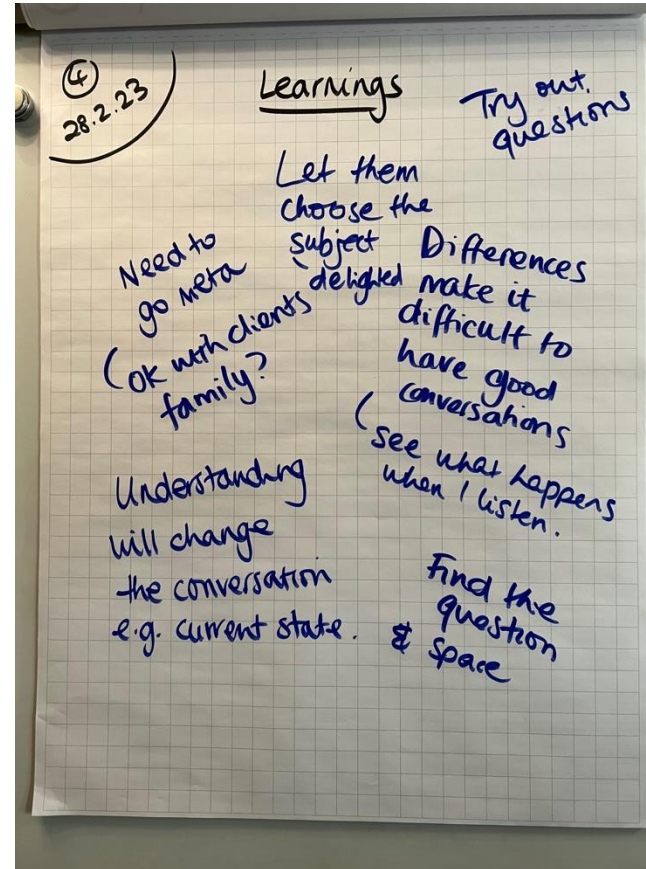 4
28.2.23
Learnings
Try out
questions
Let them
choose the
subject
delighted
Need to
go meta
(OK with clients
family?
Differences
make it
difficult to
have good
conversations
(see what happens
when I listen.
Understanding
will change
the conversation
e.g. current state.
Find the
question
& space